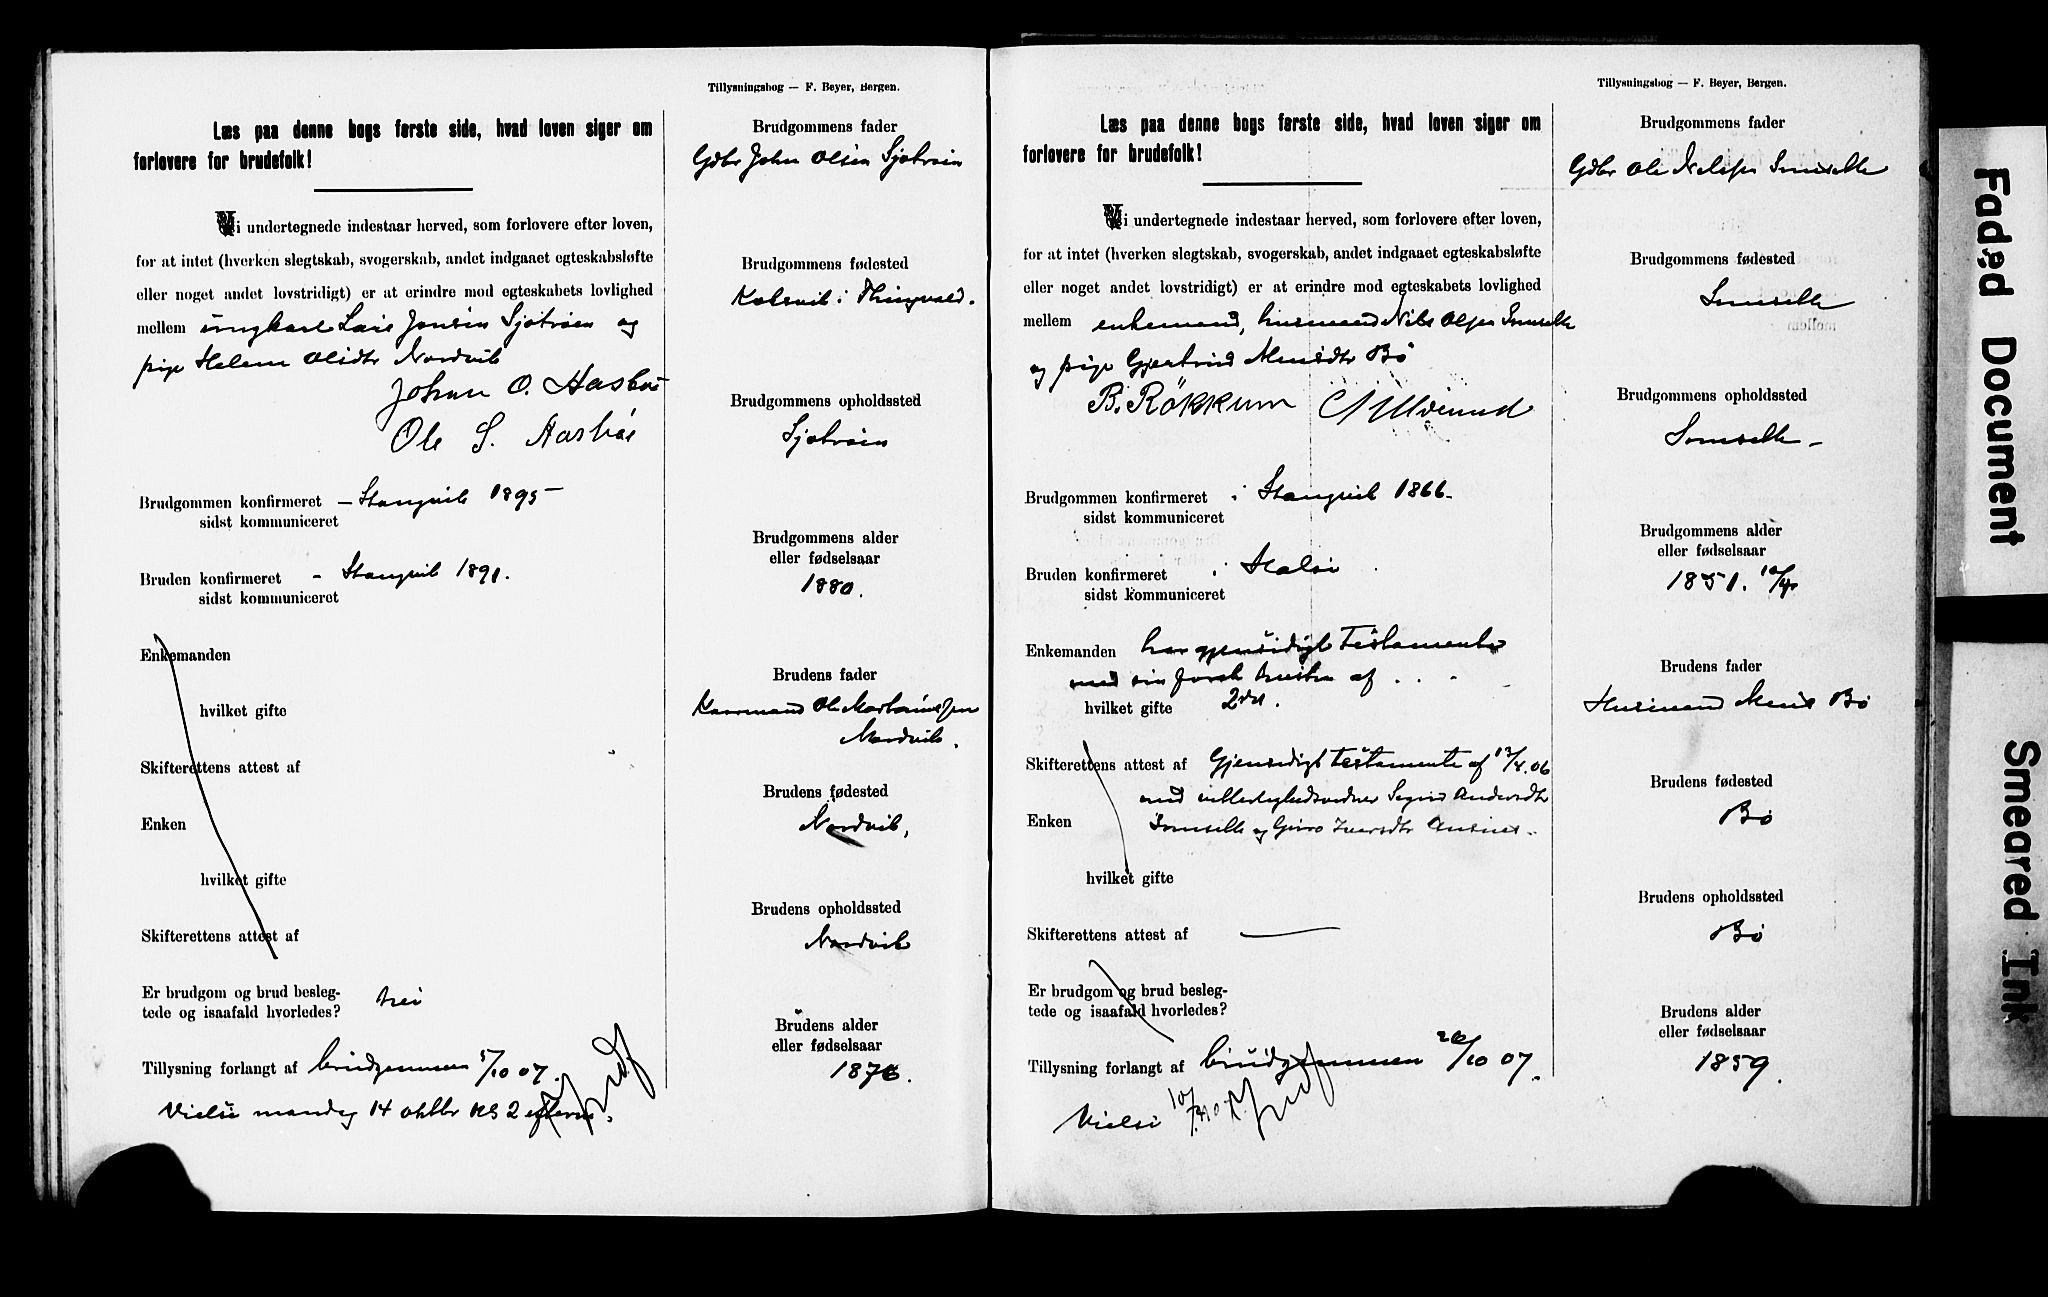 Tillysningsbog — F. Beyer, Bergen.
Læs paa denne bogs første side, hvad loven siger om
forlovere for brudefolk!
Vi undertegnede indestaar herved, som forlovere efter loven,
for at intet (hverken slegtskab, svogerskab, andet indgaaet egteskabsløfte
eller noget andet lovstridigt) er at erindre mod egteskabets lovlighed
mellem ungkarl Lars Jonsen Sjøtrøen og
pige Helene Olsdtr Nordvik
Johan O. Aasbø
Ole S. Aasbøe
Brudgommen konfirmeret – Stangvik 1895 –
sidst kommuniceret
Bruden konfirmeret – Stangvik 1891.
sidst kommuniceret
Enkemanden
hvilket gifte
Skifterettens attest af
Enken
hvilket gifte
Skifterettens attest af
Er brudgom og brud besleg-
tede og isaafald hvorledes? nei
Tillysning forlangt af brudgommen 5/10 07.
Vielse mandag 14 oktbr kl 2 efterm.
Brudgommens fader
Gdbr John Olsen Sjøtrøen
Brudgommens fødested
i Thingvold.
Brudgommens opholdssted
Sjøtrøen
Brudgommens alder
eller fødselsaar
1880.
Brudens fader
Ole
Nordvik.
Brudens fødested
Nordvik.
Brudens opholdssted
Nordvik
Brudens alder
eller fødselsaar
1876.
Tillysningsbog — F. Beyer, Bergen.
Læs paa denne bogs første side, hvad loven siger om
forlovere for brudefolk!
Vi undertegnede indestaar herved, som forlovere efter loven,
for at intet (hverken slegtskab, svogerskab, andet indgaaet egteskabsløfte
eller noget andet lovstridigt) er at erindre mod egteskabets lovlighed
mellem enkemand, husmand Nils Olsen
og pige Gjertrud Monsdtr Bø
B. Røkkum
Brudgommen konfirmeret i Stangvik 1866.
sidst kommuniceret
Bruden konfirmeret i Halse
sidst kommuniceret
Enkemanden har gjensidigt Testamente
med sin hustru af . . .
hvilket gifte 2det.
Skifterettens attest af Gjensidigt Testamente af 13/4.06
med
Enken og
hvilket gifte
Skifterettens attest af —
Er brudgom og brud besleg-
tede og isaafald hvorledes?
Tillysning forlangt af brudgommen 26/10 07.
Vielse
Brudgommens fader
Gdbr Ole
Brudgommens fødested
Brudgommens opholdssted
Brudgommens alder
eller fødselsaar
1851.
Brudens fader
Husmand Mons Bø
Brudens fødested
Bø
Brudens opholdssted
Bø
Brudens alder
eller fødselsaar
1859.
Faded Document
Smeared Ink